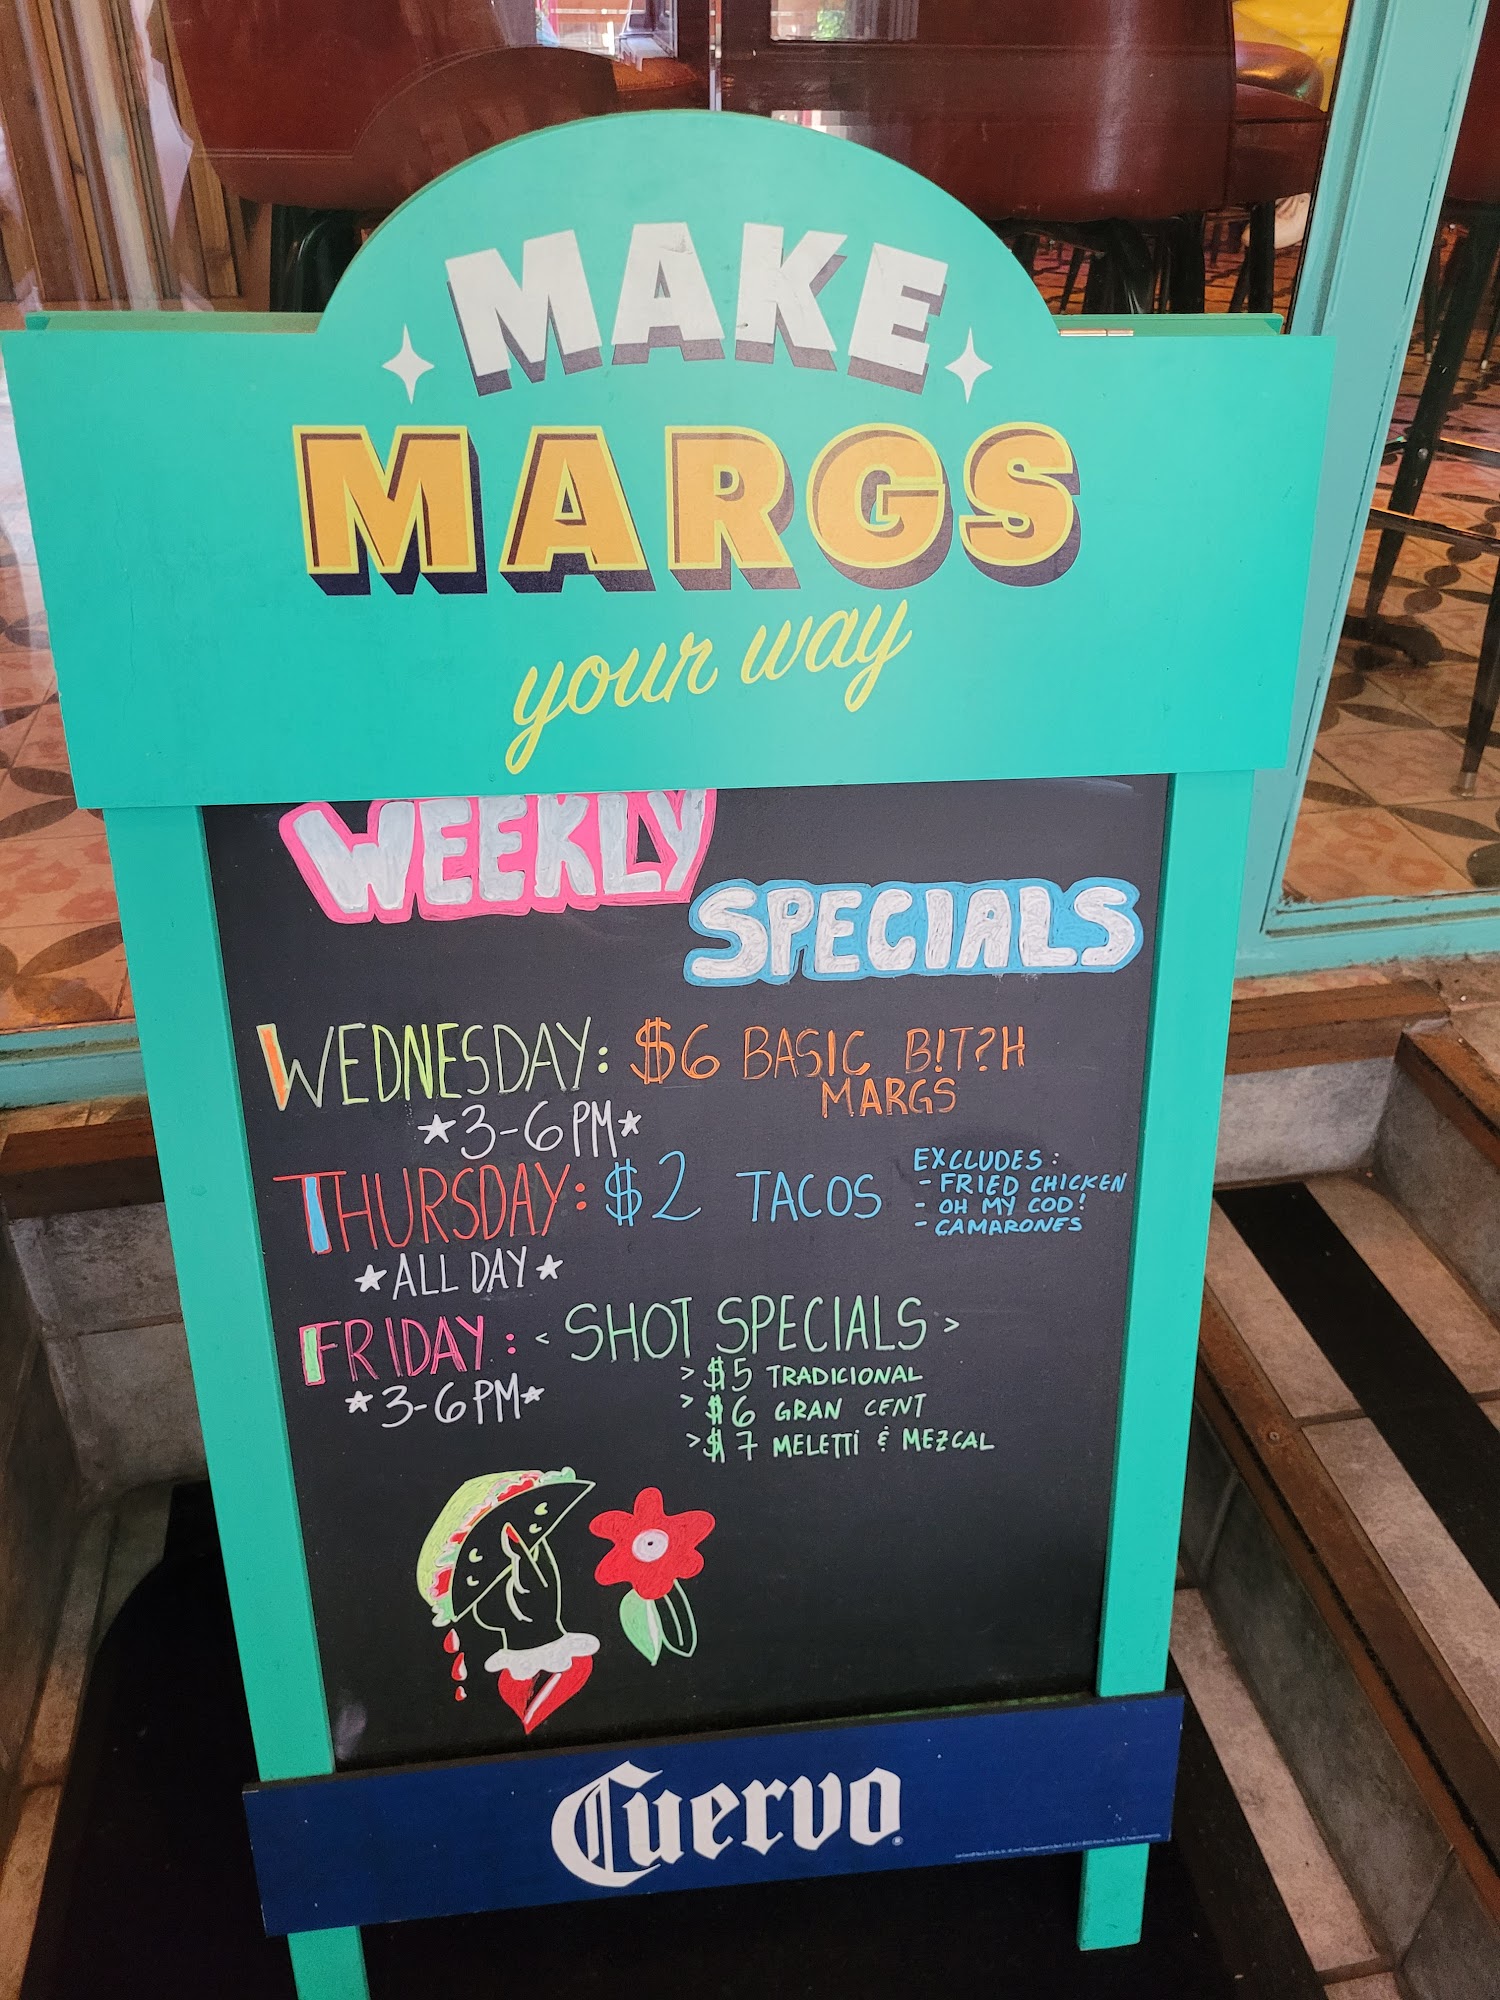 MAKE
MARGS
your way
WEEKLY
SPECIALS
WEDNESDAY: $6 BASIC B!T?H
MARGS
*3-6PM*
THURSDAY: $2 TACOS
*ALL DAY*
EXCLUDES:
- FRIED CHICKEN
- OH MY COD!
- CAMARONES
FRIDAY: < SHOT SPECIALS >
*3-6PM*
> $5 TRADICIONAL
> $6 GRAN CENT
> $7 MELETTi & MEZCAL
Cuervo®